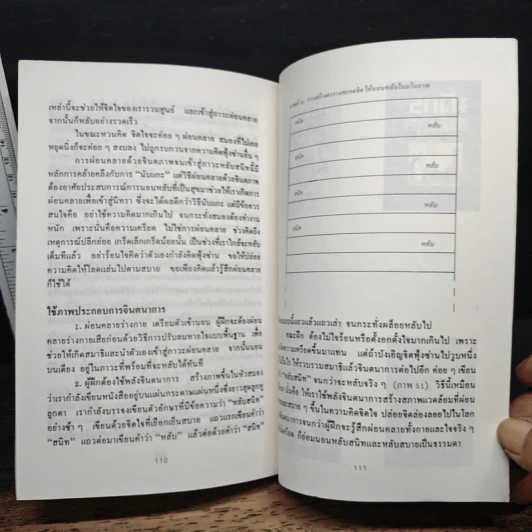 เหล่านี้จะช่วยให้จิตใจของเรารวมศูนย์ และเข้าสู่ภาวะผ่อนคลาย
จากนั้นก็หลับอย่างรวดเร็ว
ในขณะหวนคิด จิตใจจะค่อย ๆ ผ่อนคลาย สมองที่ไม่เคย
หยุดนิ่งก็จะค่อย ๆ สงบลง ไม่ถูกรบกวนจากความคิดฟุ้งซ่านอื่น ๆ
การผ่อนคลายด้วยจินตภาพจนเข้าสู่ภาวะหลับสนิทนี้มี
หลักการคล้ายคลึงกับการ "นับแกะ" แต่วิธีผ่อนคลายด้วยจินตภาพ
ต้องอาศัยประสบการณ์การนอนหลับที่เป็นสุขมาช่วยให้เราเกิดการ
ผ่อนคลายเพื่อเข้าสู่นิทรา ซึ่งจะได้ผลดีกว่าวิธีนับแกะ แต่มีข้อควร
สนใจคือ อย่าใช้ความคิดมากเกินไป จนกระทั่งสมองต้องทำงาน
หนัก เพราะนั่นคือความเครียด ไม่ใช่การผ่อนคลาย ช่วงคิดถึง
เหตุการณ์ปลีกย่อย เกร็ดเล็กเกร็ดน้อยนั้น เป็นช่วงที่เราใกล้จะหลับ
เต็มทีแล้ว อย่าร้อนใจคิดว่าตัวเองกำลังคิดฟุ้งซ่าน ขอให้ปล่อย
ความคิดให้ไหลแล่นไปตามสบาย ขอเพียงคิดแล้วรู้สึกผ่อนคลาย
ก็ใช้ได้
ใช้ภาพประกอบการจินตนาการ
1. ผ่อนคลายร่างกาย เตรียมตัวเข้านอน ผู้ฝึกจะต้องผ่อน
คลายร่างกายเสียก่อนด้วยวิธีการปรับลมหายใจแบบพื้นฐาน เพื่อ
ช่วยให้เกิดสมาธิและนำตัวเองเข้าสู่ภาวะผ่อนคลาย จากนั้นนอน
บนเตียง อยู่ในภาวะที่พร้อมที่จะหลับได้ทันที
2. ผู้ฝึกต้องใช้พลังจินตนาการ สร้างภาพขึ้นในหัวสมอง
ว่าเรากำลังเขียนหนังสืออยู่บนแผ่นกระดาษแผ่นหนึ่งซึ่งลาวสุดลูกหู
ลูกตา เรากำลังบรรจงเขียนตัวอักษรที่มีข้อความว่า "หลับสนิท"
อย่างช้า ๆ เขียนด้วยจิตใจที่เยือกเย็นสบาย แถวแรกเขียนคำว่า
"สนิท" แถวต่อมาเขียนคำว่า "หลับ" แล้วต่อด้วยคำว่า "สนิท"
110
สนิท
หลับ
สนิท
หลับ
สนิท
หลับ
แบบนี้แถวแล้วแถวเล่า จนกระทั่งผล็อยหลับไป
ขณะฝึก ต้องไม่ใจร้อนหรือตั้งอกตั้งใจมากเกินไป เพราะ
ความเครียดขึ้นมาแทน แต่ถ้าบังเอิญจิตฟุ้งซ่านไปวูบหนึ่ง
ให้รวบรวมสมาธิแล้วจินตนาการต่อไปอีก ค่อย ๆ เขียน
"หลับสนิท" จนกว่าจะหลับจริง ๆ (ภาพ 51) วิธีนี้เหมือน
นั่นคือ ให้เราใช้พลังจินตนาการสร้างสภาพแวดล้อมที่ผ่อน
และสบาย ๆ ขึ้นในความคิดจิตใจ ปล่อยจิตล่องลอยไปในโลก
จนกว่าผู้ฝึกจะรู้สึกผ่อนคลายทั้งกายและใจจริง ๆ
ก็ย่อมนอนหลับสนิทและหลับสบายเป็นธรรมดา
111